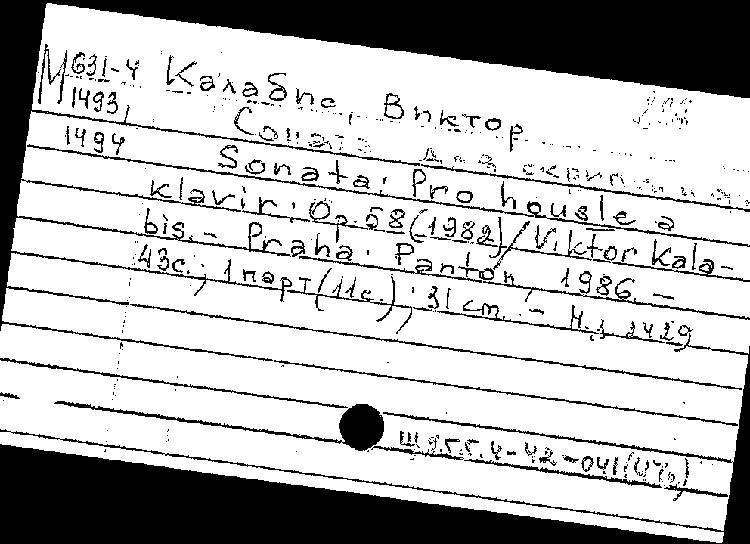 М 631-4 Калабис, Виктор
1493, Соната для скрипки и др.
1494 Sonata: Pro housle a
klavír: Op.58(1982)/Viktor Kala-
bis. - Praha: Panton, 1986. -
43с.; 1 парт(11с.); 31 cm. - Н.з 2429
Щ955.4-42-041(4Че)